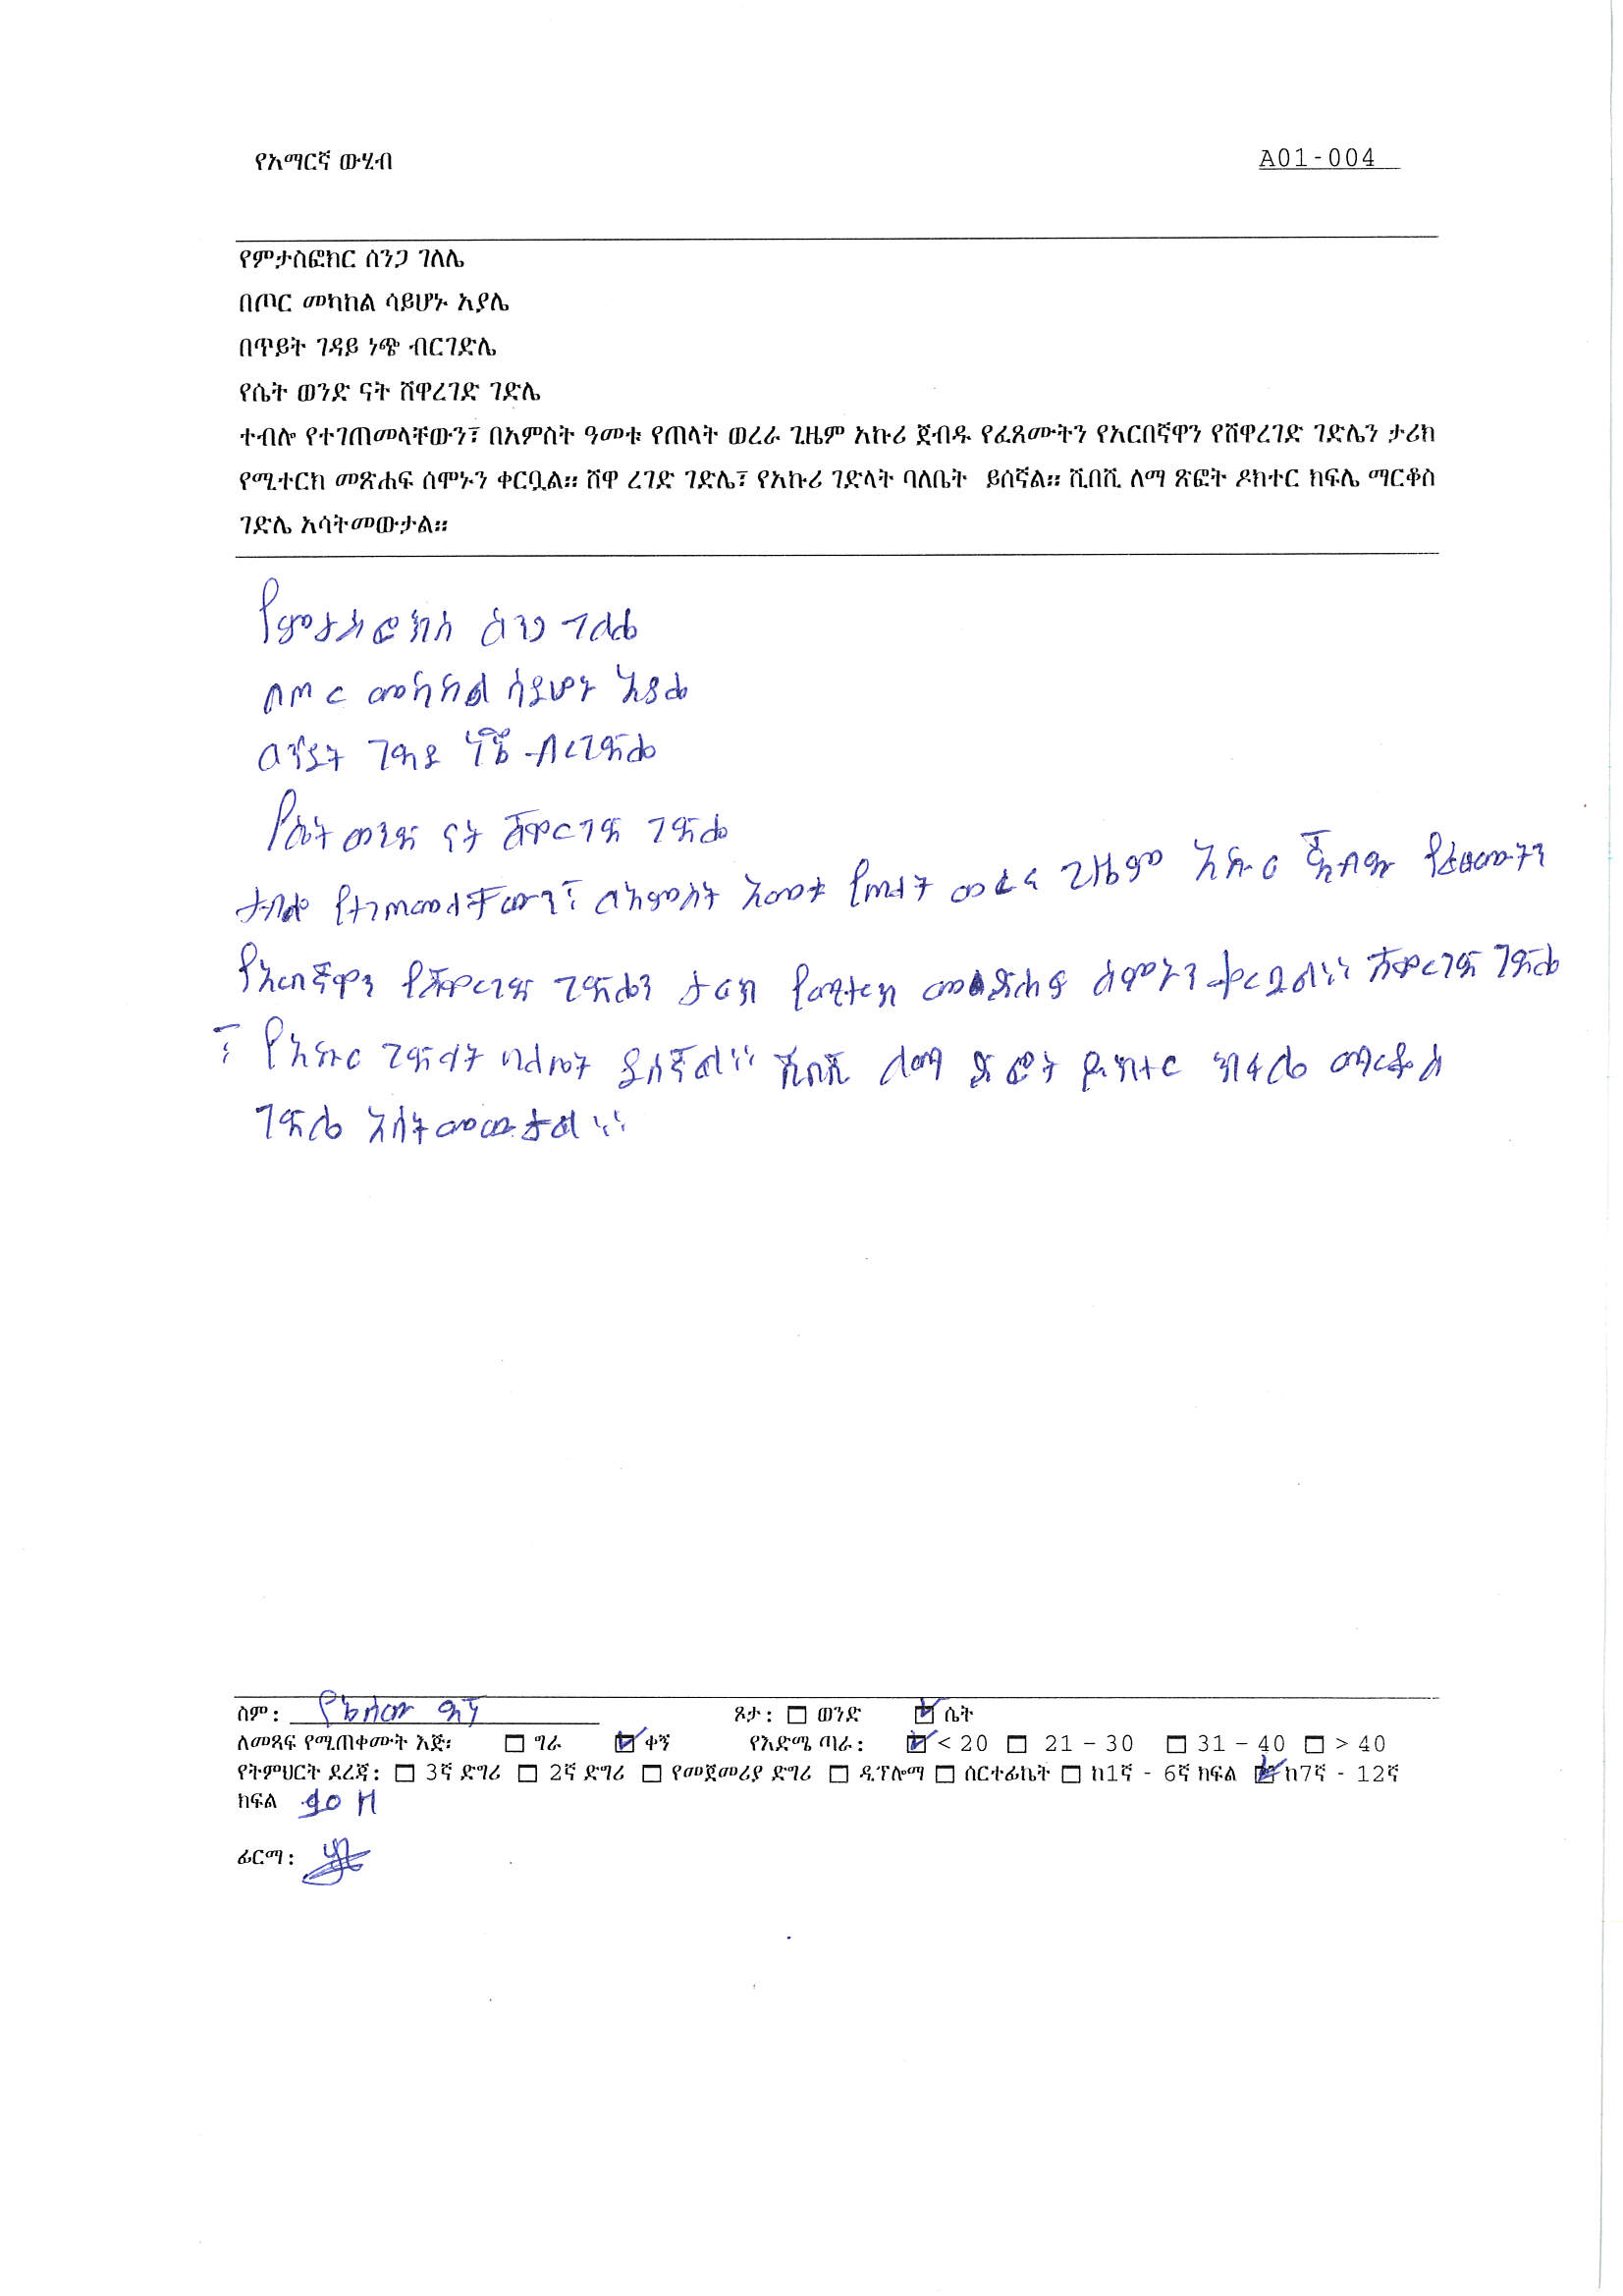 የአማርኛ ውሂብ A01-004
የምታስፎክር ሰንጋ ገለሌ
በጦር መካከል ሳይሆኑ አያሌ
በጥይት ገዳይ ነጭ ብርገድሌ
የሴት ወንድ ናት ሸዋረገድ ገድሌ
ተብሎ የተገጠመላቸውን፣ በአምስት ዓመቱ የጠላት ወረራ ጊዜም አኩሪ ጀብዱ የፈጸሙትን የአርበኛዋን የሸዋረገድ ገድሌን ታሪክ
የሚተርክ መጽሐፍ ሰሞኑን ቀርቧል። ሸዋ ረገድ ገድሌ፣ የአኩሪ ገድላት ባለቤት ይሰኛል። ሺበሺ ለማ ጽፎት ዶክተር ክፍሌ ማርቆስ
ገድሌ አሳትመውታል።
የምታስፎክስ ሰንጋ ገለሌ
በጦር መካከል ሳይሆኑ አያሌ
በጥይት ገዳይ ነጭ ብረገድሌ
የሴት ወንድ ናት ሸዋርገድ ገድሌ
ተብሎ የተገጠመላቸውን፣ በአምስት አመቱ የጠላት ወረራ ጊዜም አኩሪ ጀብዱ የፈፀሙትን
የአርበኛዋን የሸዋርገድ ገድሌን ታሪክ የሚተርክ መፅሐፍ ሰሞኑን ቀርቧል። ሸዋርገድ ገድሌ
፣ የአኩሪ ገድላት ባለቤት ይሰኛል። ሺበሺ ለማ ፅፎት ዶክተር ክፋሌ ማርቆስ
ገድሌ አሳትመውታል።
ስም: ጾታ: ወንድ ሴት
ለመጻፍ የሚጠቀሙት እጅ: ግራ ቀኝ የእድሜ ጣራ: < 20 21 - 30 31 - 40 > 40
የትምህርት ደረጃ: 3ኛ ድግሪ 2ኛ ድግሪ የመጀመሪያ ድግሪ ዲፕሎማ ሰርተፊኬት ከ1ኛ - 6ኛ ክፍል ከ7ኛ - 12ኛ
ክፍል
ፊርማ: